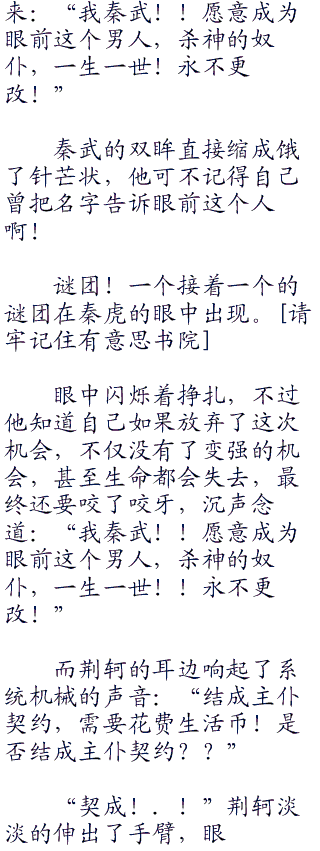 来：“我秦武！！愿意成为
眼前这个男人，杀神的奴
仆，一生一世！永不更
改！”
秦武的双眸直接缩成饿
了针芒状，他可不记得自己
曾把名字告诉眼前这个人
啊！
谜团！一个接着一个的
谜团在秦虎的眼中出现。[请
牢记住有意思书院]
眼中闪烁着挣扎，不过
他知道自己如果放弃了这次
机会，不仅没有了变强的机
会，甚至生命都会失去，最
终还要咬了咬牙，沉声念
道：“我秦武！！愿意成为
眼前这个男人，杀神的奴
仆，一生一世！！永不更
改！”
而荆轲的耳边响起了系
统机械的声音：“结成主仆
契约，需要花费生活币！是
否结成主仆契约？？”
“契成！．！”荆轲淡
淡的伸出了手臂，眼